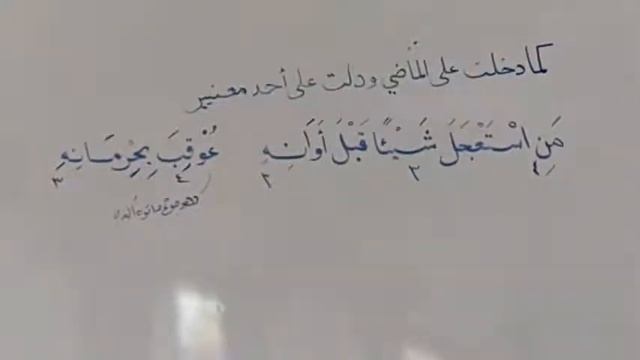 كما دخلت على الماضي ودلت على أحد معنيين
مَنِ اسْتَعْجَلَ شَيْئًا قَبْلَ أَوَانِهِ عُوْقِبَ بِحِرْمَانِهِ
١ ٣ ٢ ٤ ٣